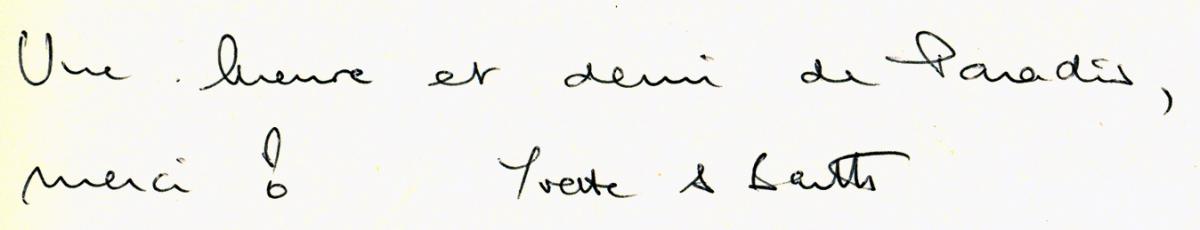 Une heure et demi de Paradis,
merci ! Yvette & Barth